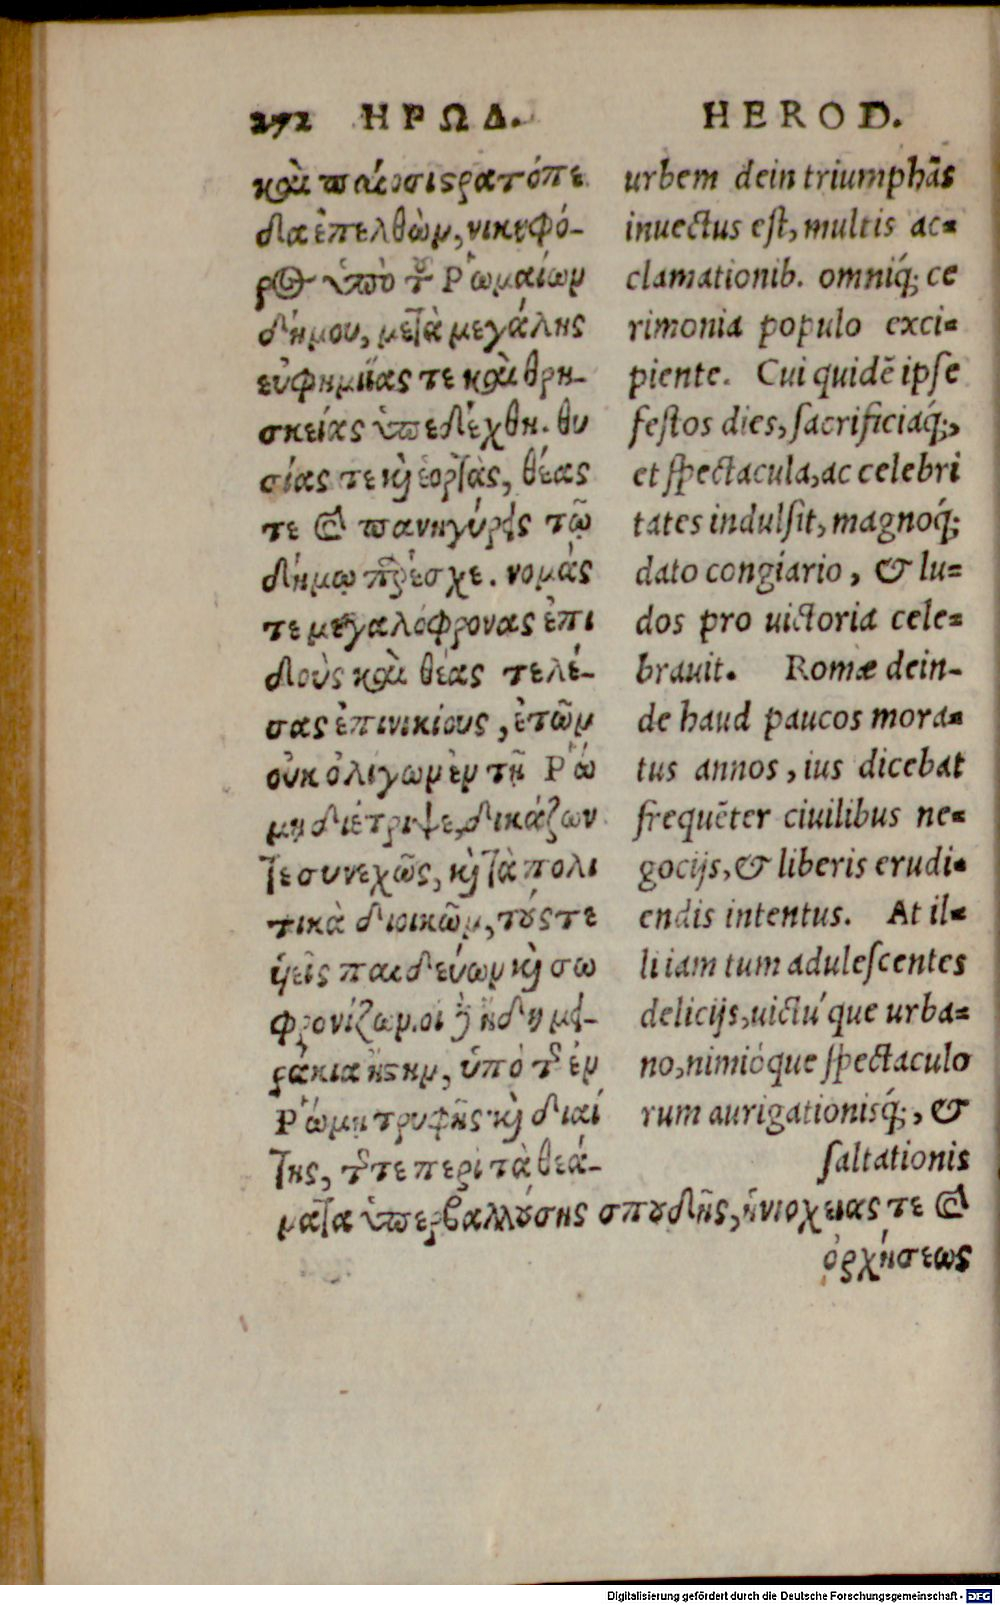 272 ΗΡΩΔ.
καὶ πᾶσι στρατόπε
δα ἐπελθὼν, νικηφό-
ρος ὑπὸ τοῦ Ῥωμαίων
δήμου, μετὰ μεγάλης
εὐφημίας τε καὶ θρη-
σκείας ὑπεδέχθη. θυ
σίας τε κỳ ἑορτὰς, θέας
τε καὶ πανηγύρεις τῷ
δήμῳ παρέσχε. νομάς
τε μεγαλόφρονας ἐπι
δοὺς καὶ θέας τελέ-
σας ἐπινικίους, ἐτῶν
οὐκ ὀλίγων ἐν τῇ Ῥώ
μῃ διέτριψε, δικάζων
τε συνεχῶς, καὶ τὰ πολι
τικὰ διοικῶν, τούς τε
υἱεῖς παιδεύων καὶ σω
φρονίζων. οἱ δὲ ἤδη μει-
ράκια ἤστην, ὑπὸ τῆς ἐν
Ῥώμῃ τρυφῆς καὶ διαί
της, τῆς τε περὶ τὰ θεά-
ματα ὑπερβαλλούσης σπουδῆς, ἡνιοχείας τε καὶ
ὀρχήσεως
HEROD.
urbem dein triumphãs
inuectus est, multis ac-
clamationib. omniq́; ce
rimonia populo exci-
piente. Cui quidẽ ipse
festos dies, sacrificiaq́;,
et spectacula, ac celebri
tates indulsit, magnoq́;
dato congiario, & lu-
dos pro uictoria cele-
brauit. Romæ dein-
de haud paucos mora-
tus annos, ius dicebat
frequẽter ciuilibus ne-
gocijs, & liberis erudi-
endis intentus. At il-
li iam tum adulescentes
delicijs, uictú que urba-
no, nimióque spectaculo
rum aurigationisq́;, &
saltationis
Digitalisierung gefördert durch die Deutsche Forschungsgemeinschaft - DFG